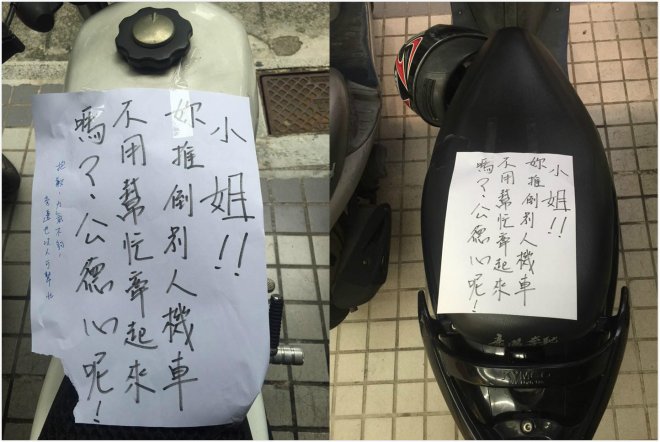 小姐!!
妳推倒別人機車
不用幫忙牽起來
嗎？公德心呢！
抱歉，力氣不夠，
旁邊也沒人可幫忙
小姐!!
妳推倒別人機車
不用幫忙牽起來
嗎？公德心呢！
KYMCO